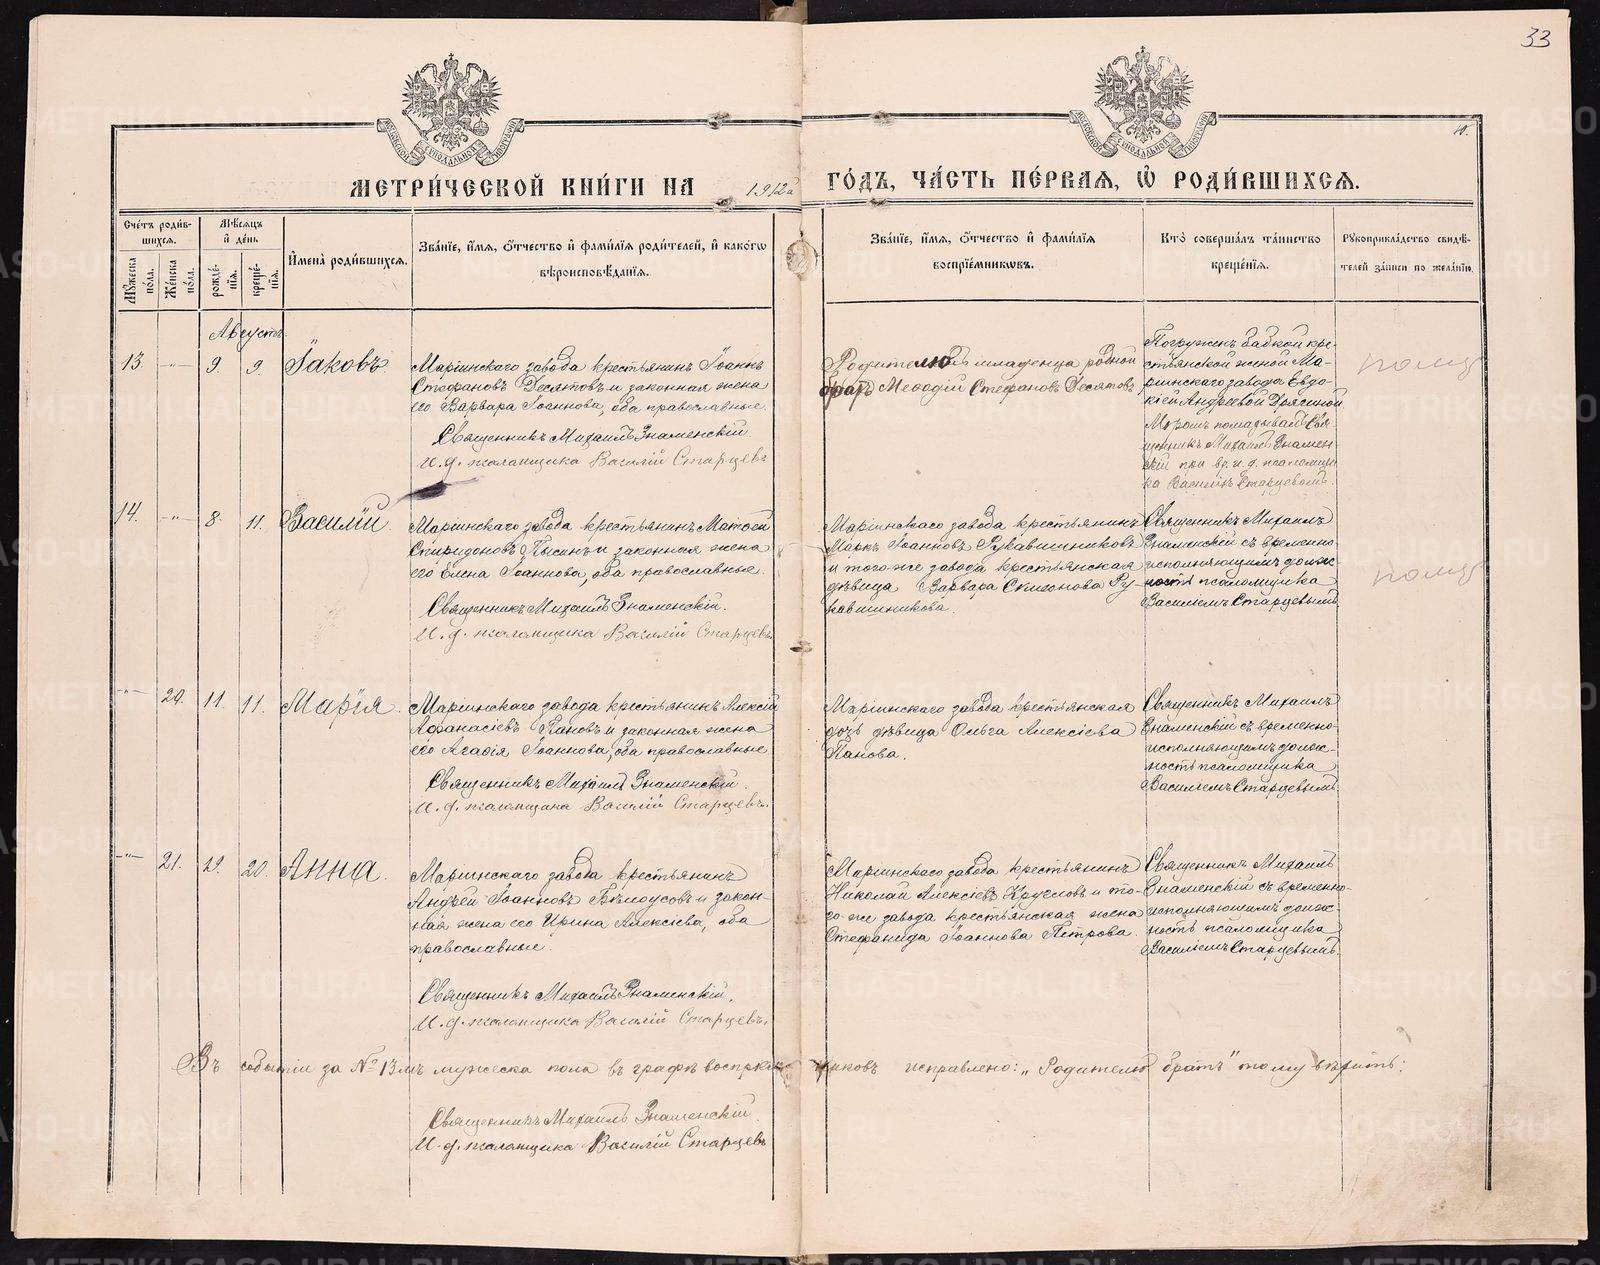 33
МОСКОВСКОЙ СѴНОДАЛЬНОЙ ТИПОГРАФІИ
МОСКОВСКОЙ СѴНОДАЛЬНОЙ ТИПОГРАФІИ
МЕТРИ́ЧЕСКОЙ КНИ́ГИ НА 1912й ГО́ДЪ, ЧА́СТЬ ПЕ́РВАѦ, Ѡ҆ РОДИ́ВШИХСѦ.
Сче́тъ роди́в-
шихсѧ.
Мꙋ́жеска по́ла.
Же́нска по́ла.
Мѣ́сѧцъ
и҆ де́нь
рожде́-
нїѧ.
креще́-
нїѧ.
И҆мена̀ роди́вшихсѧ.
Зва́нїе, и҆́мѧ, ѻ҆́тчество и҆ фами́лїѧ роди́телей, и҆ како́гѡ
вѣроисповѣ́данїѧ.
Зва́нїе, и҆́мѧ, ѻ҆́тчество и҆ фами́лїѧ
воспрїе́мникѡвъ.
Кто̀ соверша́лъ та́инство
креще́нїѧ.
Рꙋкоприкла́дство свидѣ́-
телей за́писи по жела́нїю.
Августъ.
13. -"- 9. 9 Іаковъ
Маріинскаго завода крестьянинъ Іоаннъ
Стефановъ Десятовъ и законная жена
его Варвара Іоаннова, оба православные.
Священникъ Михаилъ Знаменскій
И. д. псаломщика Василій Старцевъ
Родителю младенца родной
братъ Меѳодій Стефановъ Десятовъ
Погруженъ бабкой кре-
стьянской женой Ма-
ріинскаго завода Евдо-
кіей Андреевой
Мѵромъ помазывалъ Свя-
щенникъ Михаилъ Знамен-
скій при вр. и. д. псаломщи-
ка Василіи Старцевомъ.
14. -"- 8. 11. Василій
Маріинскаго завода крестьянинъ Матѳей
Спиридоновъ и законная жена
его Елена Іоаннова, оба православные.
Священникъ Михаилъ Знаменскій.
И. д. псаломщика Василій Старцевъ
Маріинскаго завода крестьянинъ
Маркъ Іоанновъ Рукавишниковъ
и того-же завода крестьянская
дѣвица Варвара Ру-
кавишникова.
Священникъ Михаилъ
Знаменскій съ временно-
исполняющимъ долж-
ность псаломщика
Василіемъ Старцевымъ
-"- 20. 11. 11. Марія.
Маріинскаго завода крестьянинъ Алексій
Аѳанасіевъ Пановъ и законная жена
его Агаѳія Іоаннова, оба православные
Священникъ Михаилъ Знаменскій.
И. д. псаломщика Василій Старцевъ.
Маріинскаго завода крестьянская
дочь дѣвица Ольга Алексіева
Панова.
Священникъ Михаилъ
Знаменскій съ временно-
исполняющимъ долж-
ность псаломщика
Василіемъ Старцевымъ
-"- 21. 12. 20. Анна.
Маріинскаго завода крестьянинъ
Андрей Іоанновъ Бѣлоусовъ и закон-
ная жена его Ирина Алексіева, оба
православные.
Священникъ Михаилъ Знаменскій.
И. д. псаломщика Василій Старцевъ.
Маріинскаго завода крестьянинъ
Николай Алексіевъ Кругловъ и то-
го-же завода крестьянская жена
Стефанида Іоаннова Петрова.
Священникъ Михаилъ
Знаменскій съ временно-
исполняющимъ долж-
ность псаломщика
Василіемъ Старцевымъ.
Въ событіи за № 13мъ мужеска пола въ графѣ воспріемниковъ исправлено: „Родителю братъ" тому вѣрить:
Священникъ Михаилъ Знаменскій.
И. д. псаломщика Василій Старцевъ
METRIKI.GASO-URAL.RU